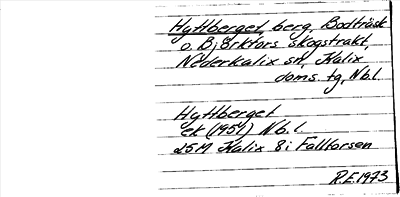 Hyttberget, berg, Bodträsk
o. Björkfors skogstrakt,
Nederkalix sn, Kalix
doms. tg, Nb.l.
Hyttberget
ek (1959) Nb.l.
25M Kalix 8i Fallforsen
R.E.1973